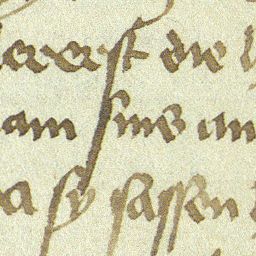 ererst die
am sins un
a sy sassen